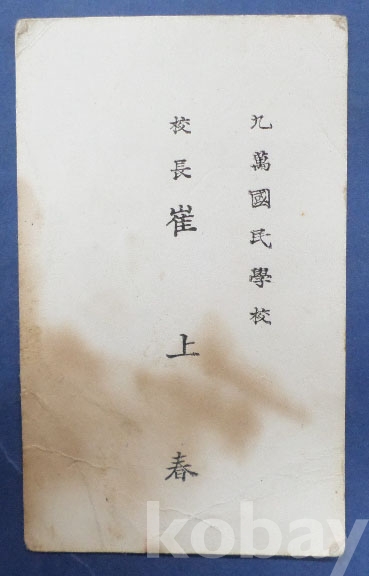 九萬國民學校
校長 崔上春
kobay